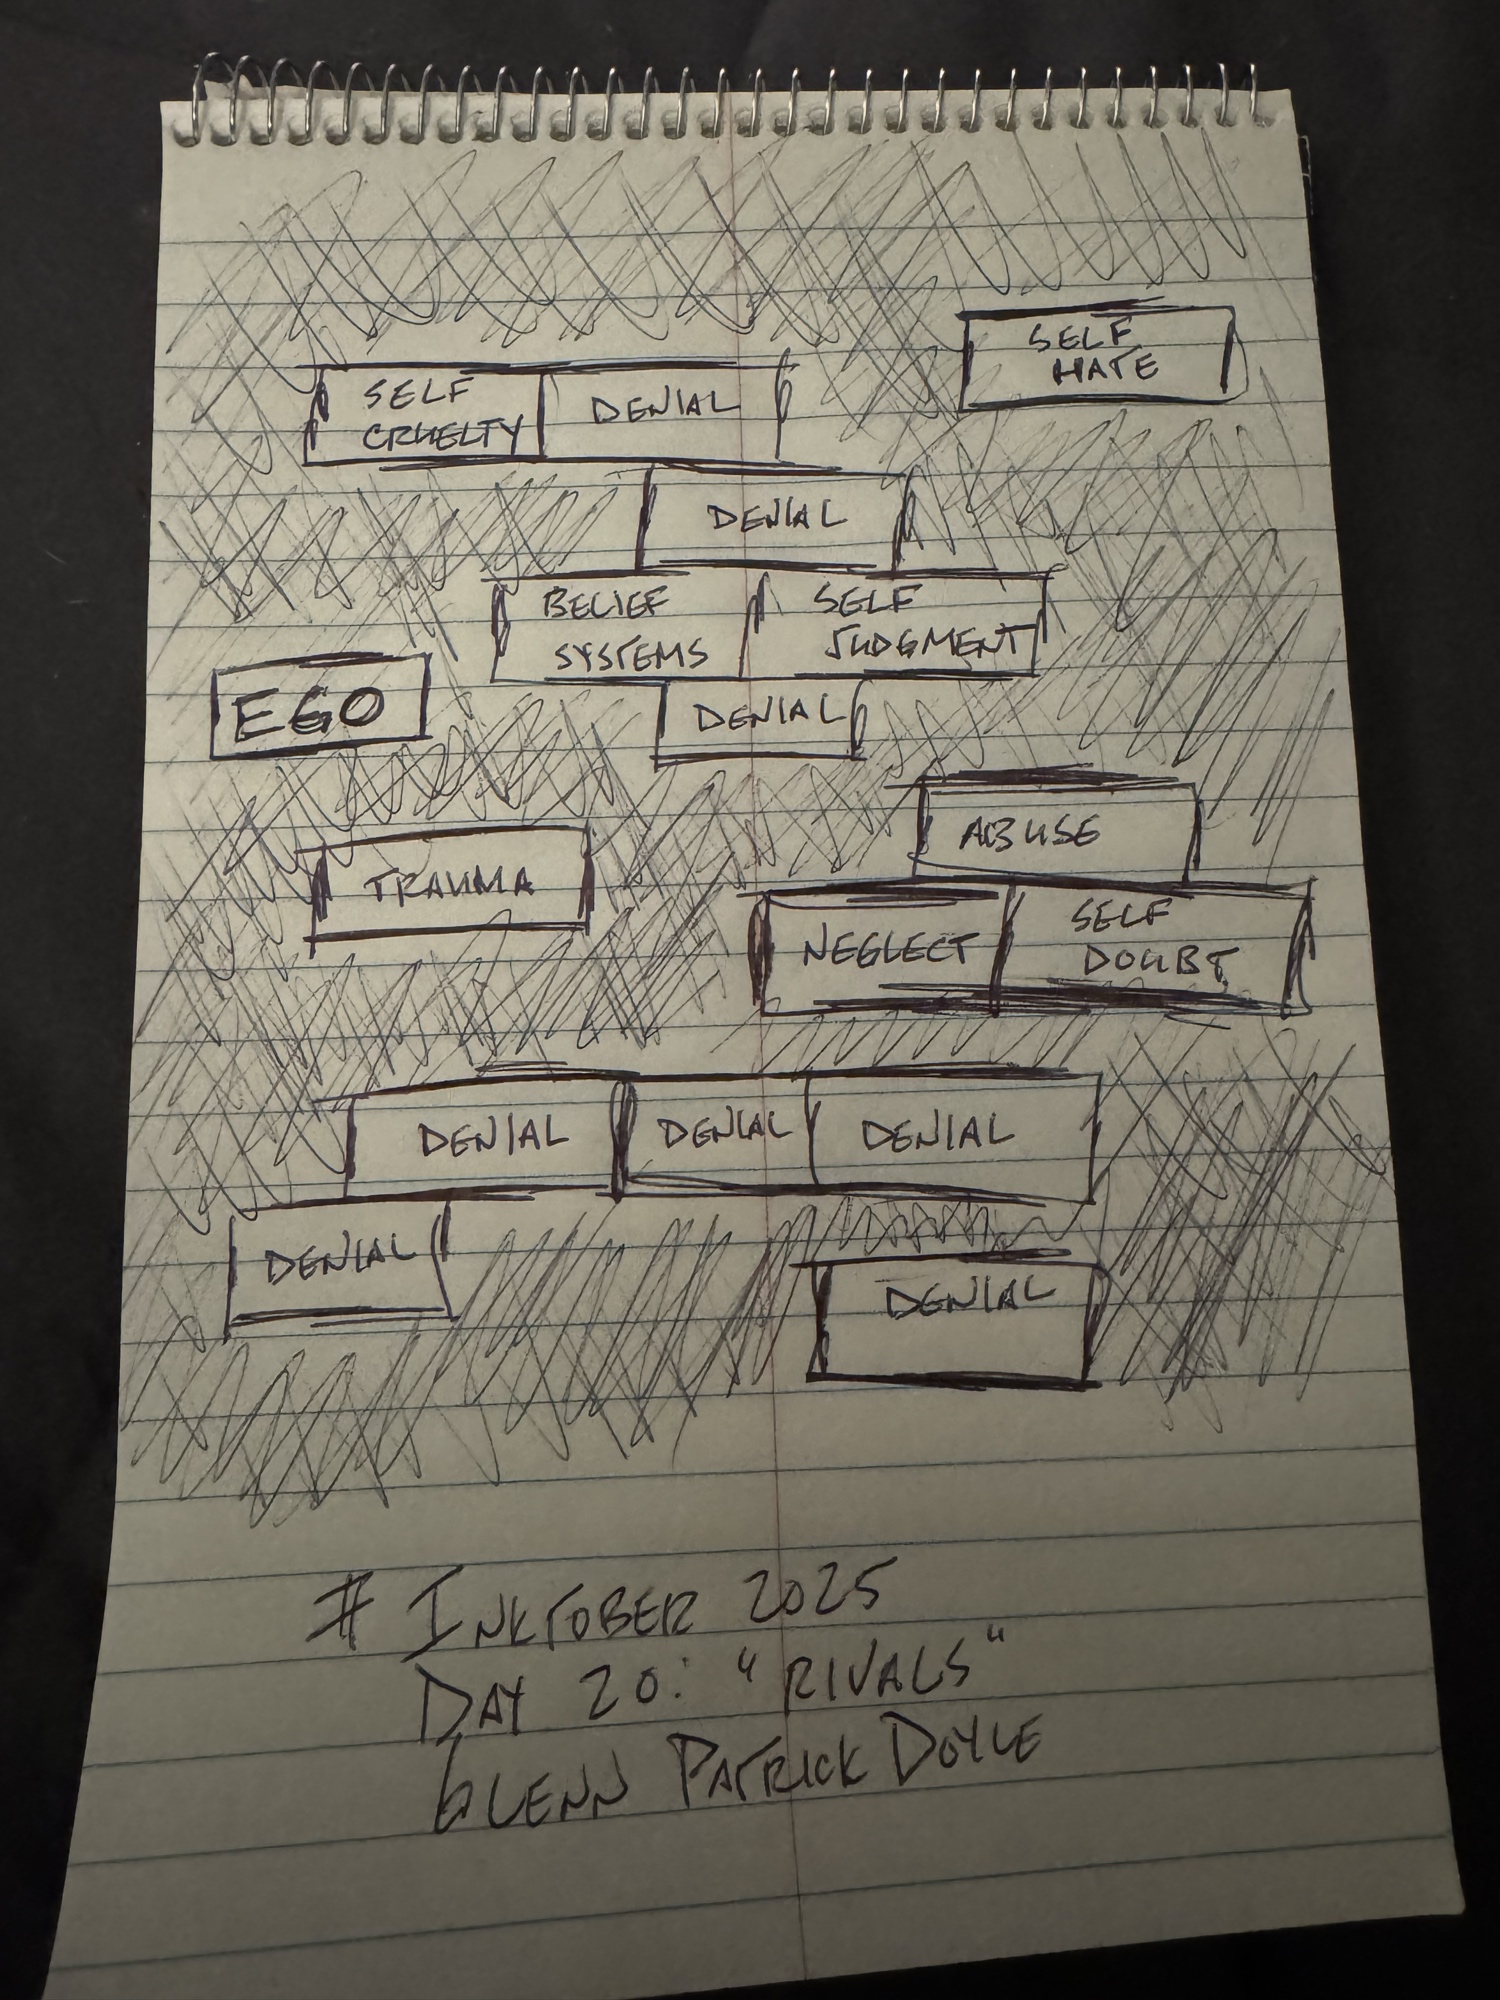 SELF
HATE
SELF
CRUELTY
DENIAL
DENIAL
BELIEF
SYSTEMS
SELF
JUDGMENT
EGO
DENIAL
ABUSE
TRAUMA
NEGLECT
SELF
DOUBT
DENIAL
DENIAL
DENIAL
DENIAL
DENIAL
# INKTOBER 2025
DAY 20: "RIVALS"
GLENN PATRICK DOYLE